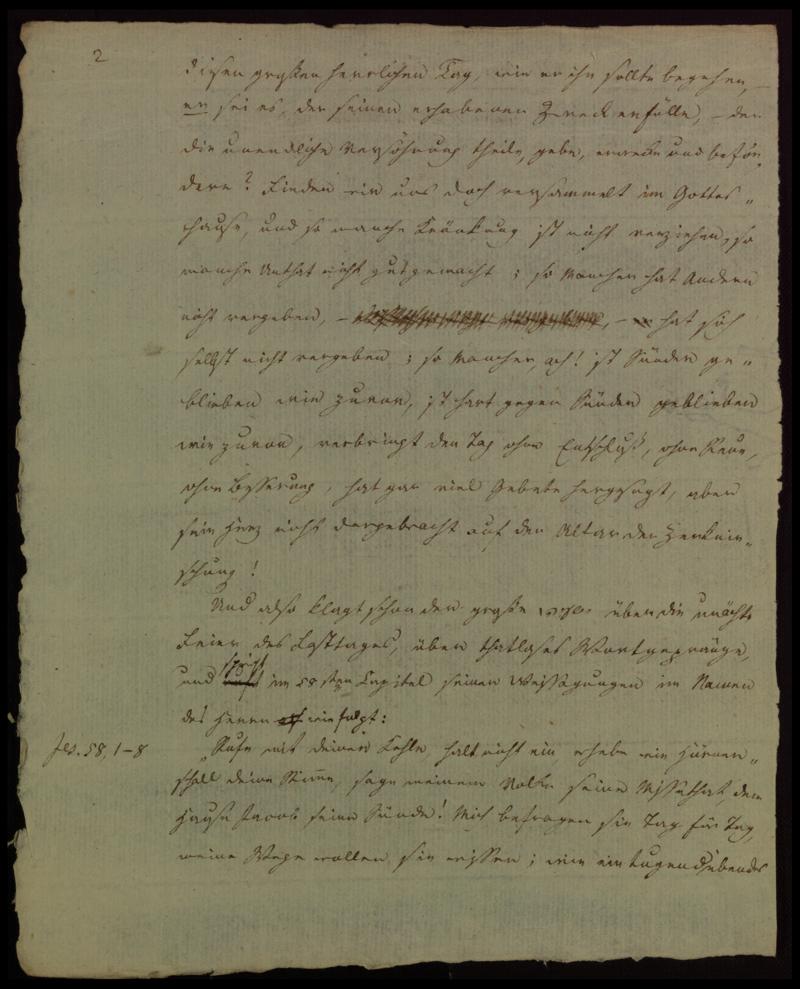 2
diesen großen herrlichen Tag, wie er ihn sollte begehen, –
er sei es, der seinen erhabenen Zweck erfülle, – der
die unendliche Versöhnung theile, gebe, erwecke und beför-
dere? Finden wir uns doch versammelt im Gottes„
hause, und so manche Kränkung ist nicht verziehen, so
manche Unthat nicht gutgemacht; so Mancher hat Andern
nicht vergeben, – – hat sich
selbst nicht vergeben; so Mancher, ach! ist Sünder ge„
blieben wie zuvor, ist hart gegen Sünder geblieben
wie zuvor, verbringt den Tag ohne Entschluß, ohne Reue,
ohne Besserung, hat gar viel Gebete hergesagt, aber
sein Herz nicht dargebracht auf den Altar der Zerknir„
schung!
Und also klagt schon der große über die unächte
Feier des Fasttages, über thatloses Wortgepränge,
und spricht im 58sten Capitel seiner Weissagungen im Namen
des Herrn wie folgt:
Jes. 58, 1–8
„Rufe mit deiner Kehle, halt nicht ein, erhebe wie Hörner„
schall deine Stimme, sage meinem Volke seine Missethat, dem
Hause Jacob seine Sünde! Mich befragen sie Tag für Tag,
meine Wege wollen sie wissen; wie ein tugendübendes